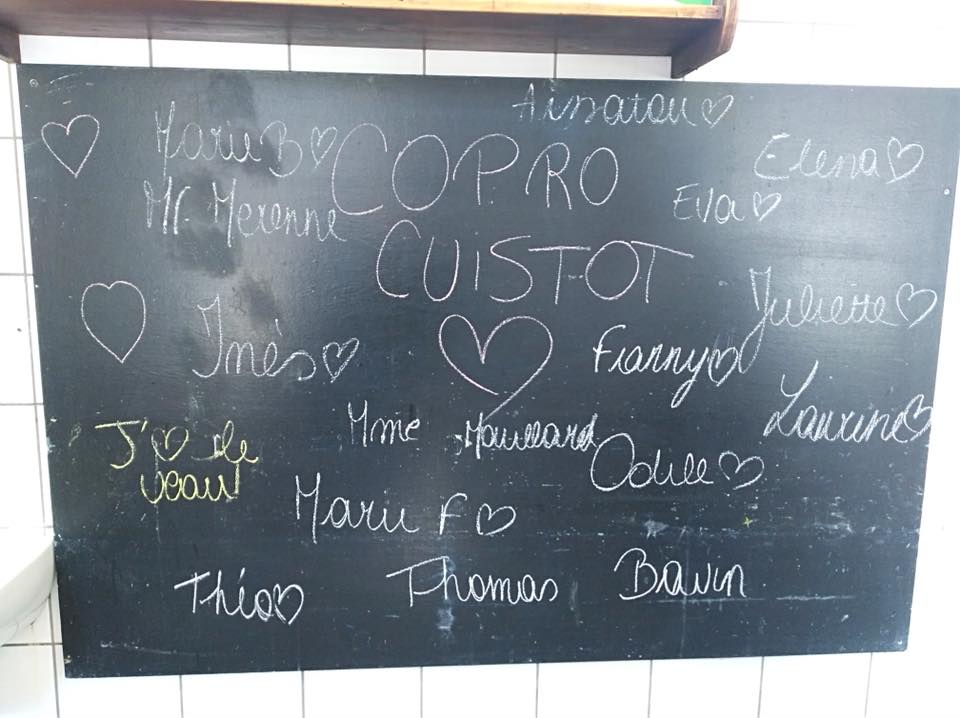 Aissatou
Marie B
COPRO
Elena
Mr Merenne
Eva
CUISTOT
Juliette
Inès
Fianny
Laurine
Mme Maillard
J'♡ le
veau
Odile
Marie F
Théo
Thomas
Bavin